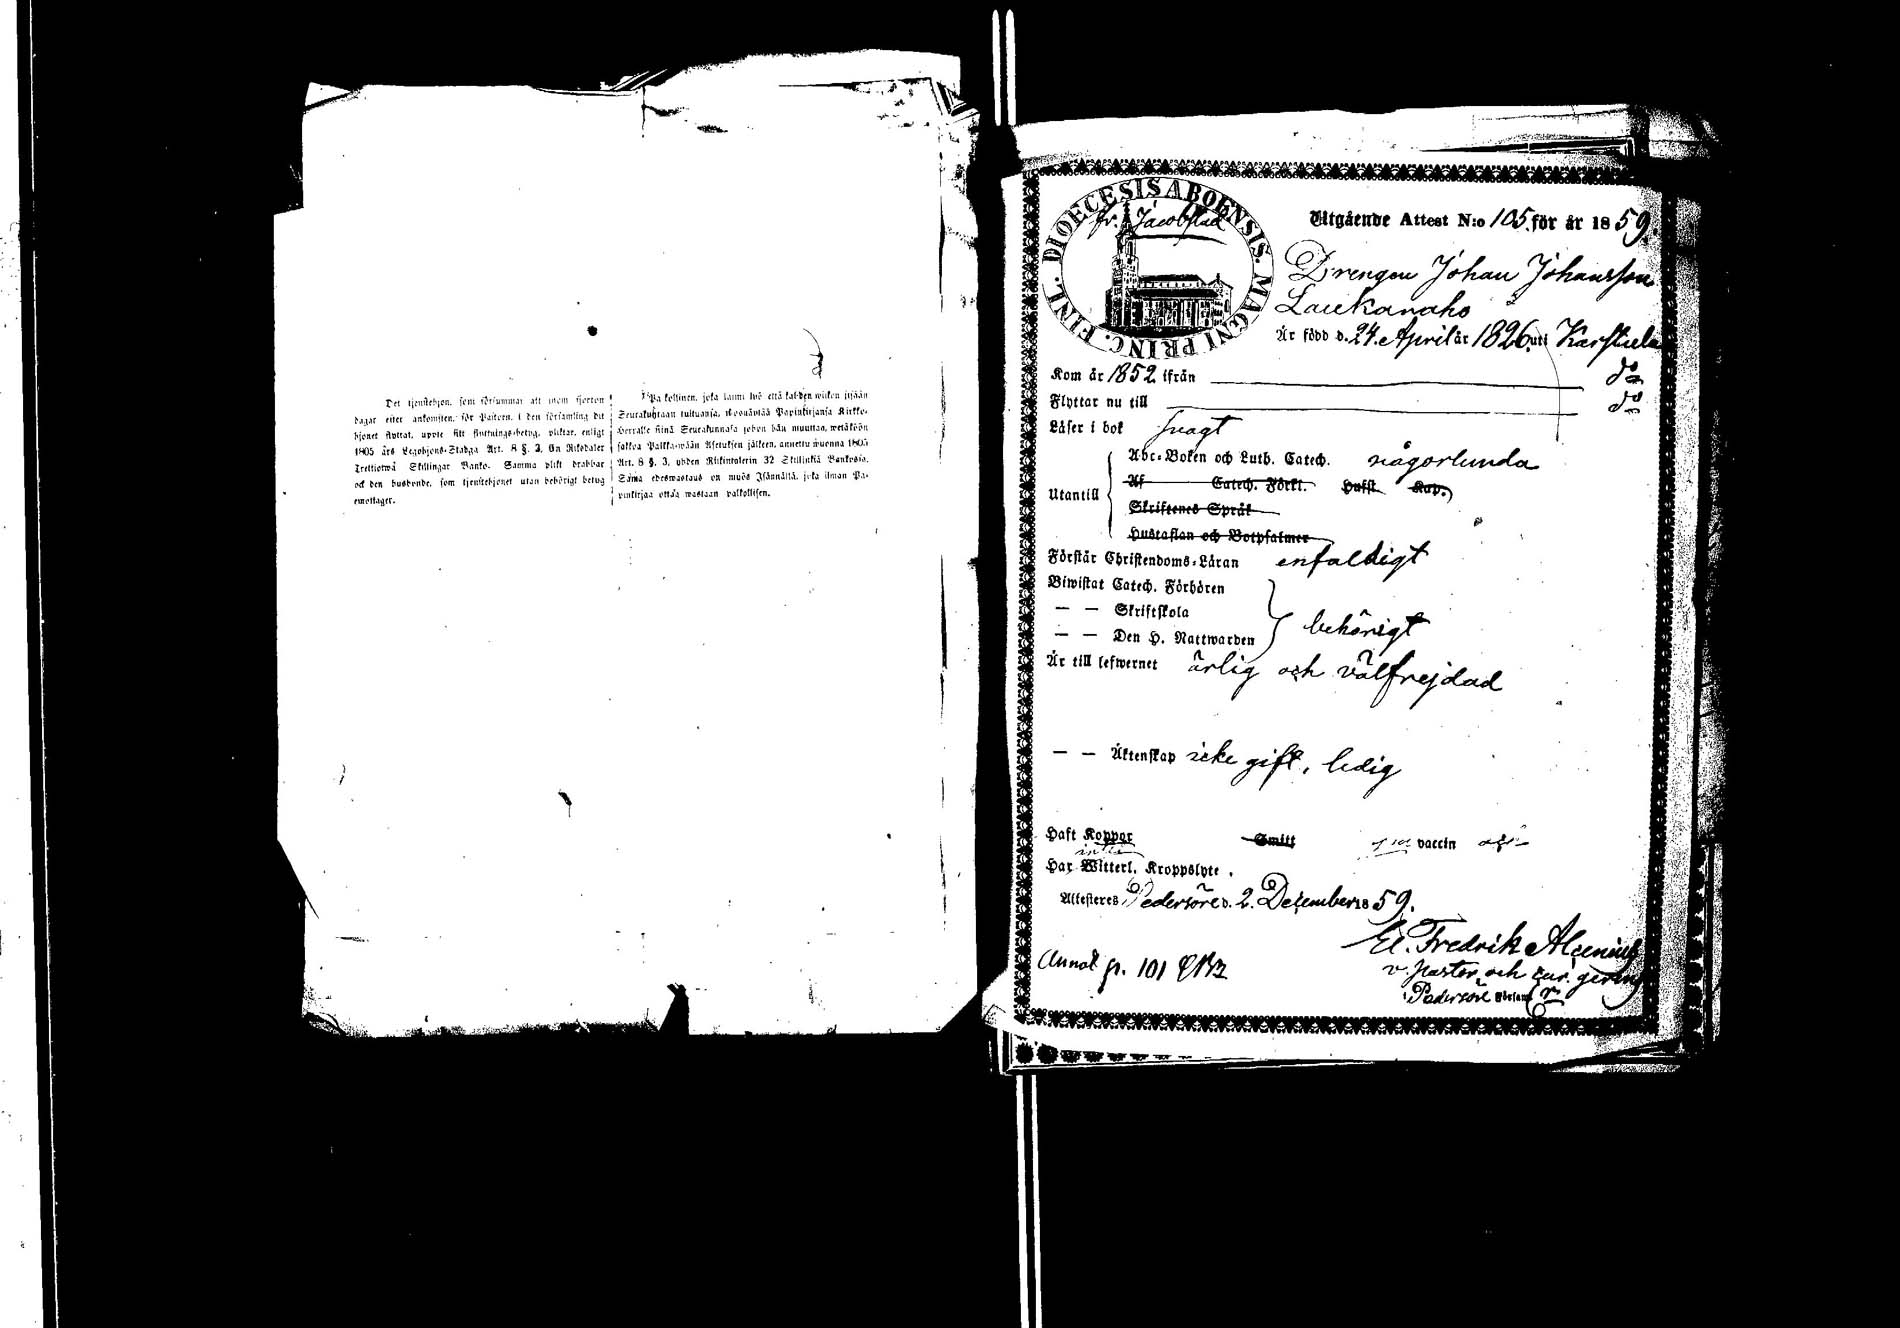 Det tjenstehjon, som försummar att inom fjorton
dagar efter ankomsten, för Pastorn i den församling dit
hjonet flyttat, uppte sitt flyttnings-betyg, pliktar, enligt
1805 års Legohjons-Stadga Art. 8 §. 3, En Riksdaler
Trettiotwå Skillingar Banko. Samma plikt drabbar
ock den husbonde, som tjenstehjonet utan behörigt betyg
emottager.
Palkollinen, joka laimi lyö että kahden wiikon sisään
Seurakuhtaan tultuansa, edesnäyttää Papinkirjansa Kirkko-
Herralle siinä Seurakunnasa johon hän muuttaa, wetäköön
sakkoa Palkka-wään Asetuksen jälkeen, annettu wuonna 1805
Art. 8 §. 3, yhden Riikintalerin 32 Skillinkiä Bankosia.
Sama edeswastaus on myös Isännällä, joka ilman Pa-
pinkirjaa ottaa wastaan palkollisen.
DIOECESIS ABOENSIS. MAGNI PRINC. FINL.
fr. Jacobstad
Utgående Attest N:o 105. för år 1859.
Drengen Johan Johansson
Laukanaho
Är född d. 24. April år 1826. uti Karstula
Kom år 1852 ifrån do
Flyttar nu till do
Läser i bok svagt
Abc-Boken och Luth. Catech. någorlunda
Utantill
Af Catech. Förkl. Hufst. Kap.
Skriftenes Språk
Hustaflan och Botpsalmer
Förstår Christendoms-Läran enfaldigt
Biwistat Catech. Förhören
— — Skriftskola
— — Den H. Nattwarden
behörigt
Är till lefwernet ärlig och välfrejdad
— — Äktenskap icke gift, ledig
Haft Koppor Smitt vaccin
Har Witterl. Kroppslyte.
Attesteres Pedersöre d. 2. December 1859.
El. Fredrik Alcenius
v. pastor och cur. gerens
i Pedersöre Församl.
Annot p. 101